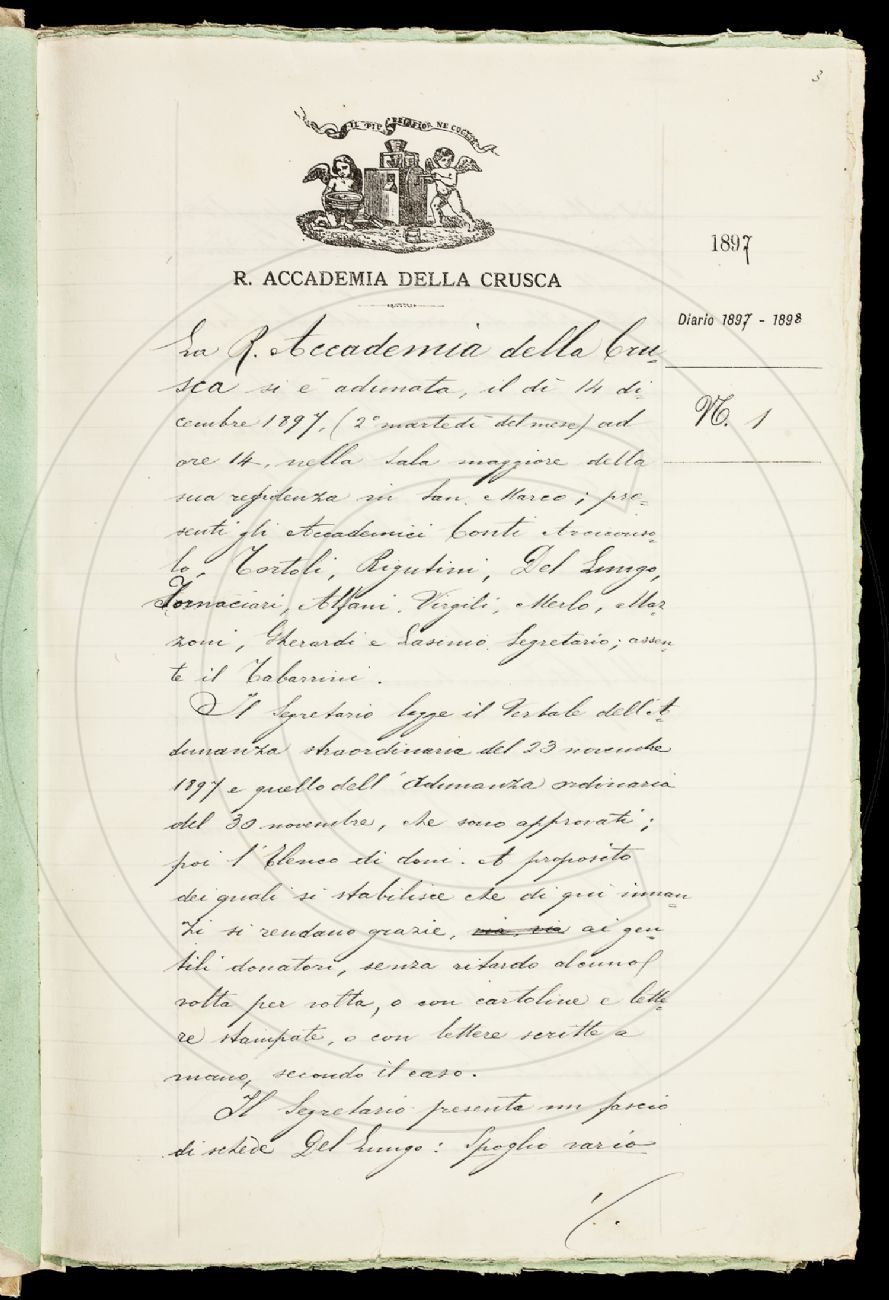 3
IL PIÙ BEL FIOR NE COGLIE
1897
R. ACCADEMIA DELLA CRUSCA
Diario 1897 - 1898
N. 1
La R. Accademia della Cru-
sca si è adunata, il dì 14 di-
cembre 1897, (2° martedì del mese) ad
ore 14, nella Sala maggiore della
sua residenza in San Marco; pre-
senti gli Accademici Conti Arciconso-
lo, Tortoli, Rigutini, Del Lungo,
Fornaciari, Alfani, Virgili, Merlo, Maz-
zoni, Gherardi e Lasinio Segretario; assen-
te il Tabarrini.
Il Segretario legge il Verbale dell'A-
dunanza straordinaria del 23 novembre
1897 e quello dell'Adunanza ordinaria
del 30 novembre, che sono approvati;
poi l'Elenco di doni. A proposito
dei quali si stabilisce che di qui innan-
zi si rendano grazie, via via ai gen-
tili donatori, senza ritardo alcuno
volta per volta, o con cartoline e lette-
re stampate, o con lettere scritte a
mano, secondo il caso.
Il Segretario presenta un fascio
di schede Del Lungo: Spoglio vario